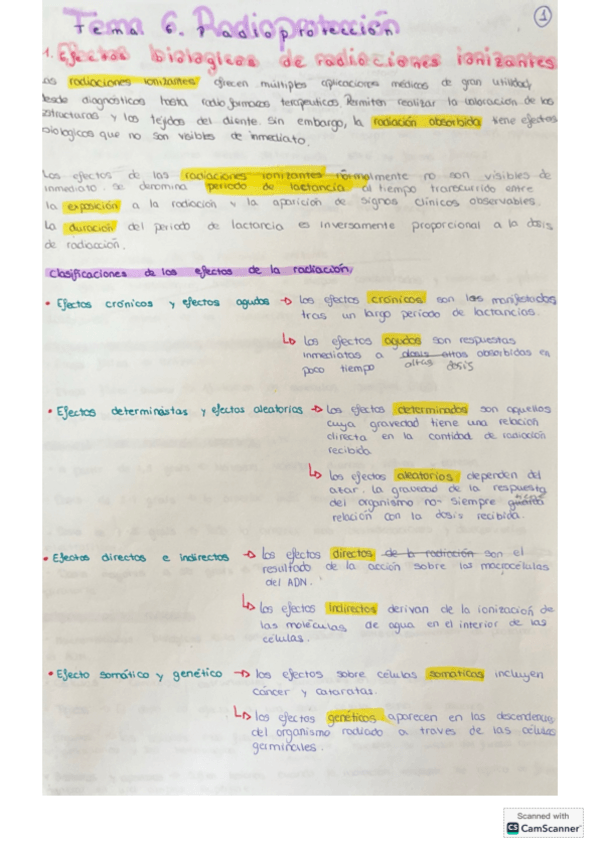 Tema 6. Radioprotección
1
1. Efectos biologicos de radiaciones ionizantes
as radiaciones ionizantes ofrecen múltiples aplicaciones médicas de gran utilidad,
desde diagnósticos hasta radio formacos terapeuticos. Permiten realizar la valoracion de las
estructuras y los tejidos del diente. Sin embargo, la radiación absorbida tiene efectos
biologicos que no son visibles de inmediato.
Los efectos de las radiaciones ionizantes normalmente no son visibles de
inmediato. se duromina periodo de lactancia al tiempo transcurrido entre
la exposición a la radiación y la aparición de signos clínicos observables.
La duración del periodo de lactancia es inversamente proporcional a la dosis
de radiacción.
Clasificaciones de los efectos de la radiación,
• Efectos crónicos y efectos agudos → los efectos crónicos son las manifestadas
tras un largo período de lactancias.
↳ los efectos agudos son respuestas
inmediatas a dosis altas absorbidas en
poco tiempo altas dosis
• Efectos determinastas y efectos aleatorios → Los efectos determinados son aquellos
cuya gravedad tiene una relación
directa en la cantidad de radiación
recibida
↳ los efectos aleatorios dependen del
azar. la gravedad de la respuesta
del organismo no siempre guarda tiene
relación con la dosis recibida.
• Efectos directos e indirectos → los efectos directos de la radiación son el
resultado de la acción sobre las macrocélulas
del ADN.
↳ los efectos Indirectos derivan de la ionización de
las moléculas de agua en el interior de las
células.
• Efecto somático y genético → los efectos sobre células somáticas incluyen
cáncer y cataratas.
↳ los efectos genéticos aparecen en las descendencias
del organismo radiado a traves de las células
germinales.
Scanned with
CS CamScanner